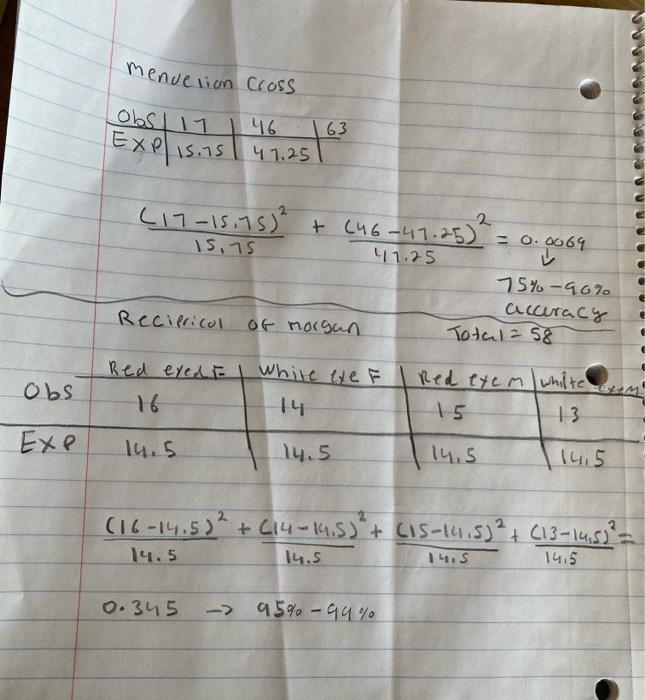 Mendelion Cross
Obs 17 46 63
Exp 15.75 47.25
(17-15.75)² / 15.75 + (46-47.25)² / 47.25 = 0.0069
↓
75% - 90%
accuracy
Reciprical of morgan Total = 58
Red eyed F White eye F Red eye M White eye M
Obs 16 14 15 13
Exp 14.5 14.5 14.5 14.5
(16-14.5)² / 14.5 + (14-14.5)² / 14.5 + (15-14.5)² / 14.5 + (13-14.5)² / 14.5 =
0.345 → 95% - 99%